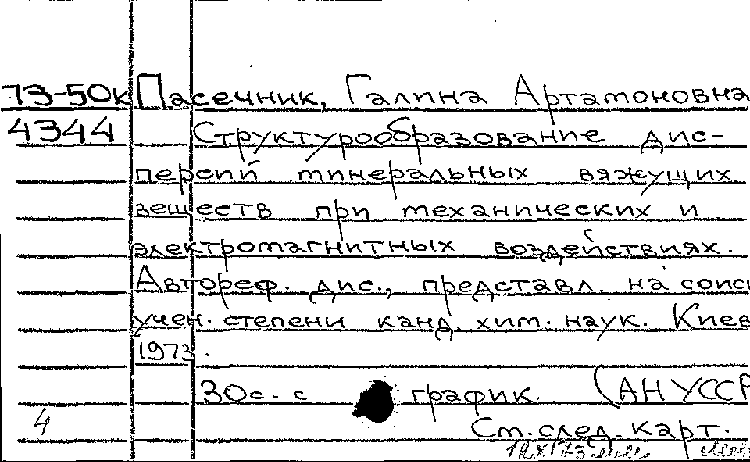 73-50к Пасечник, Галина Артамоновна
4344 Структурообразование дис-
персий минеральных вяжущих
веществ при механических и
электромагнитных воздействиях.
Автореф. дис., представл. на соиск
учен. степени канд. хим. наук. Киев
1973.
30с. с график. (АН УССР
4 См. след. карт.